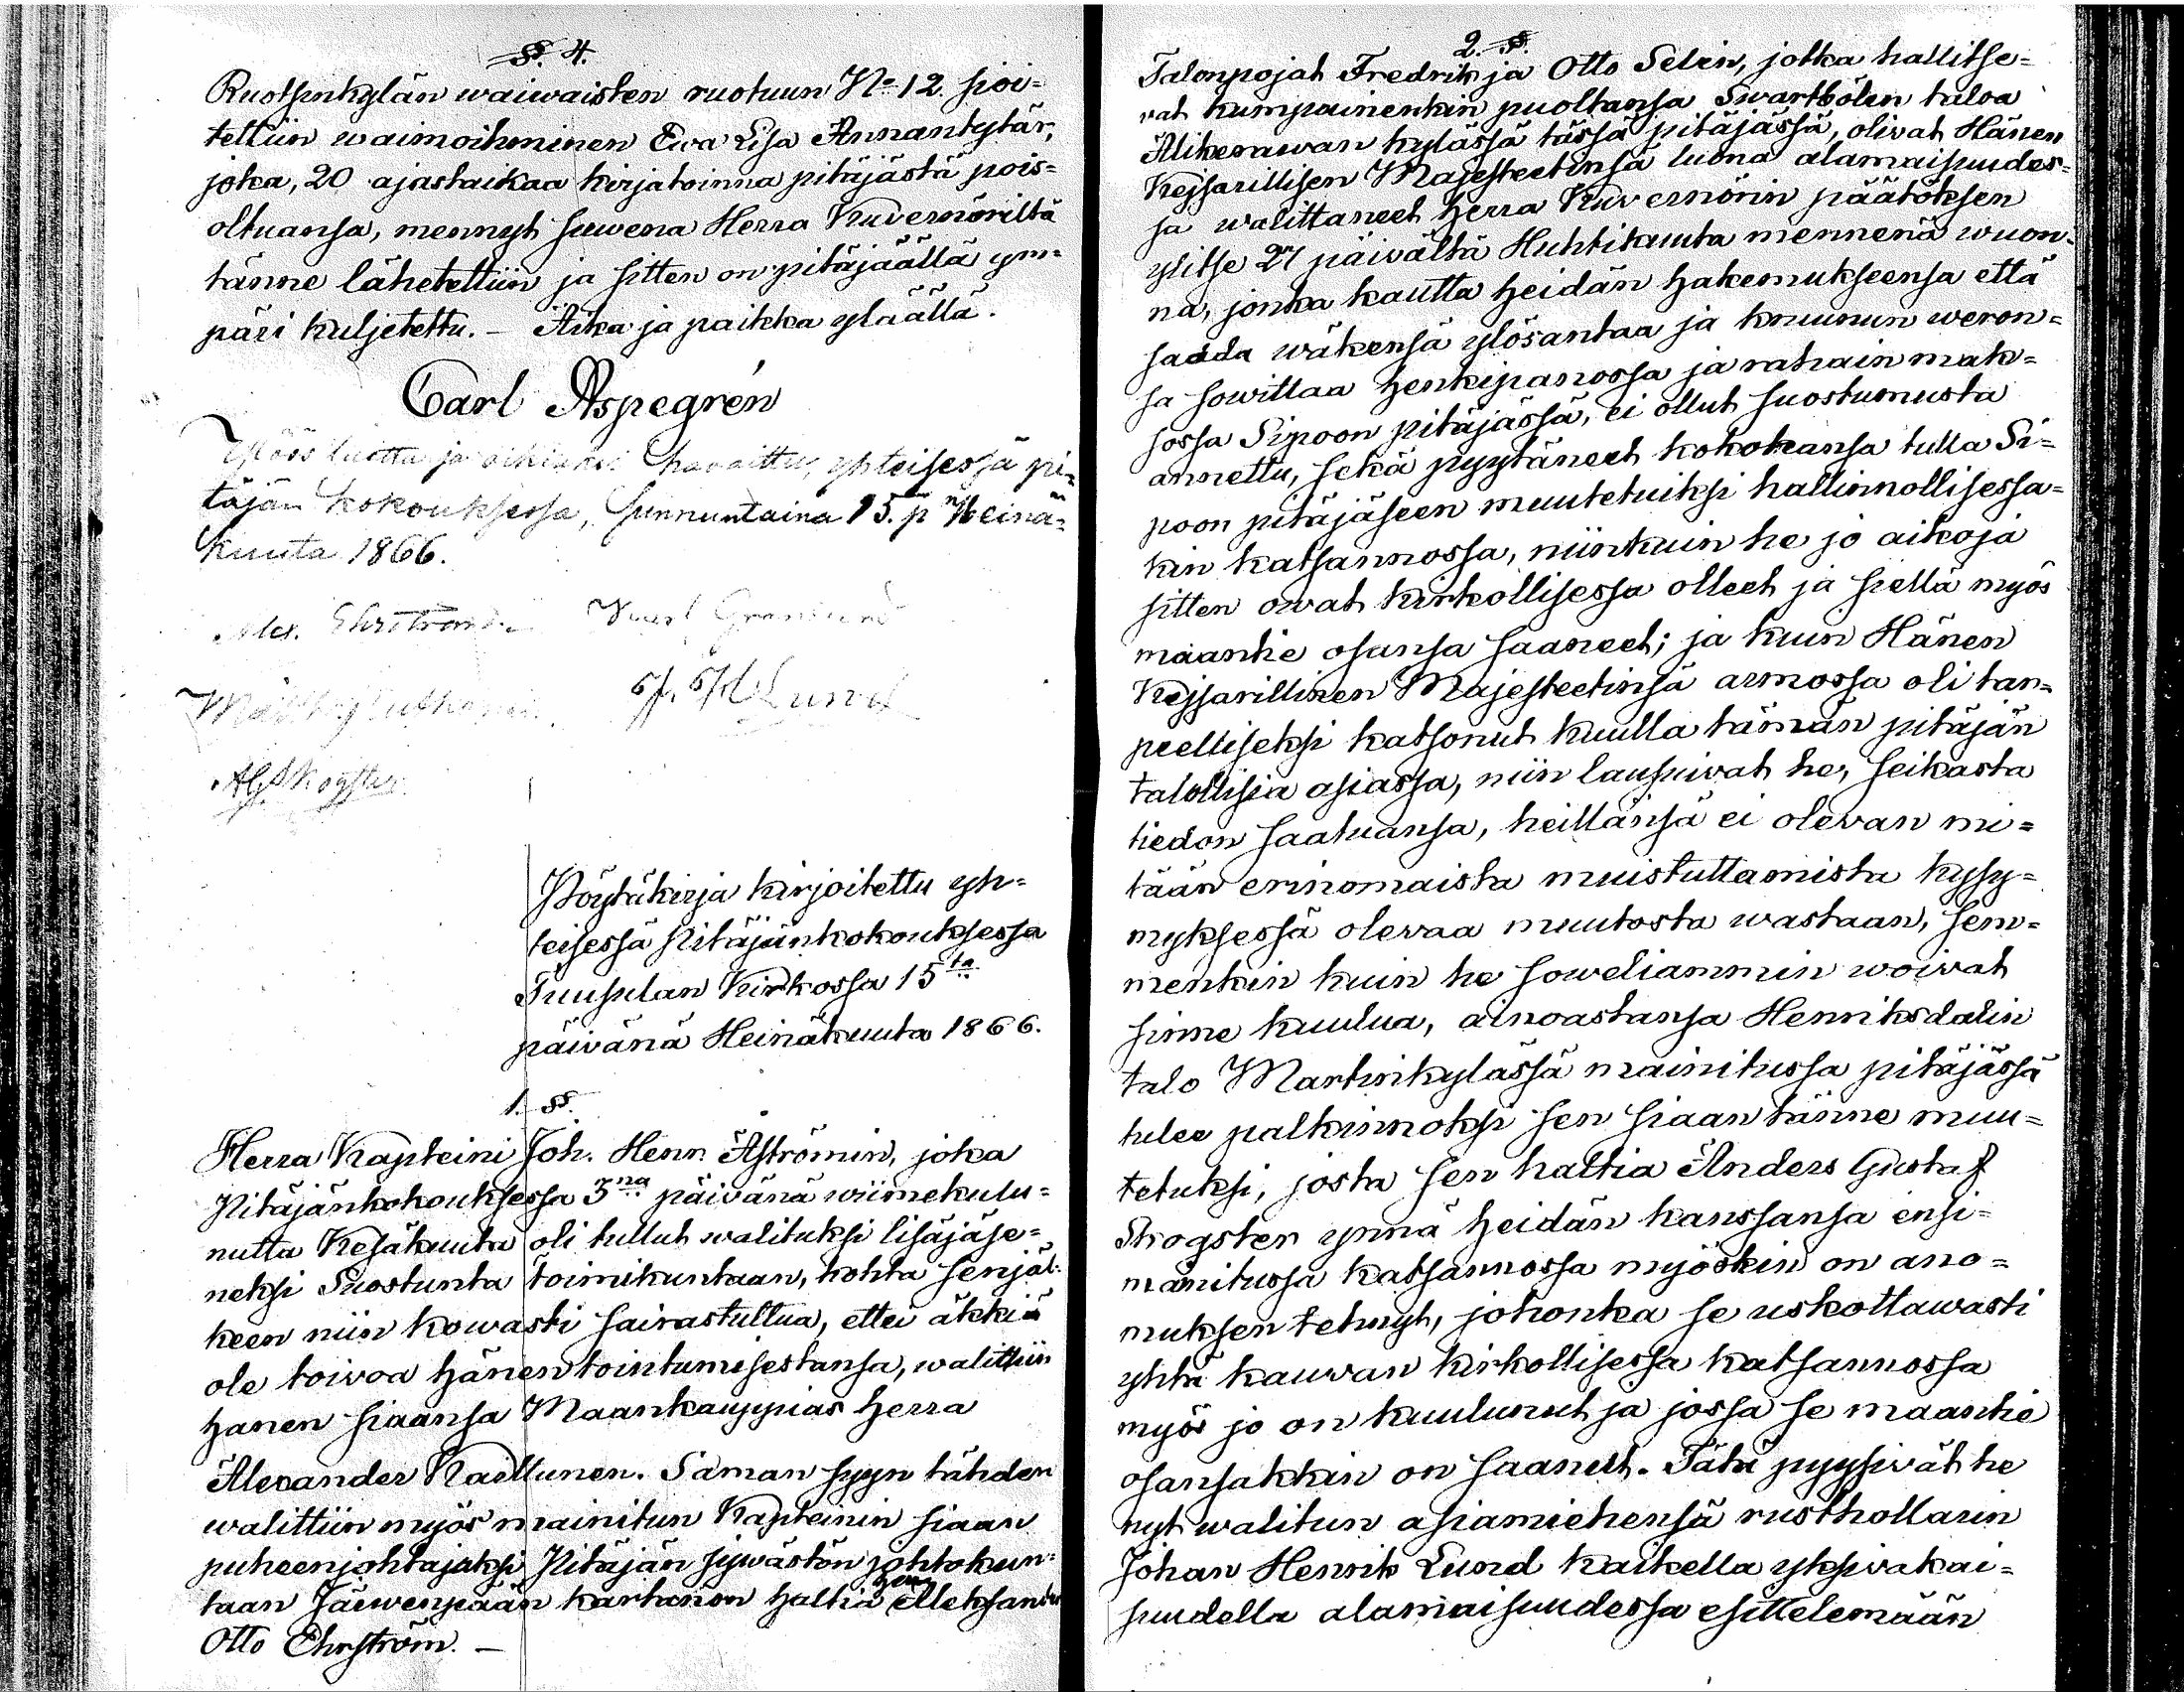 §. 4.
Ruotsinkylän waiwaisten ruotuun No 12. sioi-
tettiin waimoihminen Ewa Lisa Annantytär,
joka, 20 ajastaikaa kirjatoinna pitäjästä pois-
oltuansa, mennyt suwena Herra Kuvernöriltä
tänne lähetettiin ja sitten on pitäjäällä ym-
päri kuljetettu. – Aika ja paikka yläällä.
Carl Aspegrén
Ylöös luettu ja oikiaksi havaittu, yhteisessä pi-
täjän kokouksessa, Sunnuntaina 15. p nä Heinä-
kuuta 1866.
Alex. Ehrström Knut Granlund
Matts J. H. Lund
AG Skogster
Pöytäkirja kirjoitettu yh-
teisessä Pitäjänkokouksessa
Tuusulan Kirkossa 15ta
päivänä Heinäkuuta 1866.
1. §§.
Herra Kapteini Joh. Henr. Åströmin, joka
Pitäjänkokouksessa 3na päivänä wiimekulu-
nutta Kesäkuuta oli tullut walituksi lisäjäse-
neksi Suostunta toimikuntaan, kohta senjäl-
keen niin kowasti sairastuttua, ettei äkkiä
ole toivoa hänen tointumisestansa, walittiin
hänen siaansa Maankauppias Herra
Alexander Kaellunen. Saman syyn tähden
walittiin myös mainitun Kapteinin siaan
puheenjohtajaksi Pitäjän sywästön johtokun-
taan Järwenpään kartanon haltia Herra Aleksander
Otto Ehrström. –
2. §.
Talonpojat Fredrik ja Otto Selin, jotka hallitse-
vat kumpainenkin puoltansa Swartbölen taloa
Alikerawan kylässä tässä pitäjässä, olivat Hänen
Kejsarillisen Majesteetinsä luona alamaisuudes-
sa walittaneet Herra Kuvernörin päätöksen
ylitse 27 päivältä Huhtikuuta mennenä wuon-
na, jonka kautta heidän hakemukseensa että
saada wäkensä ylösantaa ja kruunun weron-
sa sowittaa henkipanossa ja rahain mak-
sossa Sipoon pitäjässä, ei ollut suostumusta
annettu, sekä pyytäneet kokokansa tulla Si-
poon pitäjäseen muutetuiksi hallinnollisessa-
kin katsannossa, niinkuin he jo aikoja
sitten owat kirkollisessa olleet ja siellä myös
maantie osansa saaneet; ja kuin Hänen
Kejsarillinen Majesteetinsä armossa oli tar-
peelliseksi katsonut kuulla tämän pitäjän
talollisia asiassa, niin lausuivat he, seikasta
tiedon saatuansa, heillänsä ei olevan mi-
tään erinomaista muistuttamista kysy-
myksessä olevaa muutosta wastaan, sem-
menkin kuin he soweliammin woivat
sinne kuulua, ainoastansa Henriksdalin
talo Martinkylässä mainitussa pitäjässä
tulee palkinnoksi sen siaan tänne muu-
tetuksi, josta sen haltia Anders Gustaf
Skogster ynnä heidän kanssansa ensi-
mainitussa katsannossa myöskin on ano-
muksen tehnyt, johonka se uskottawasti
yhtä kauwan kirkollisessa katsannossa
myös jo on kuulunut ja jossa se maantie
osansakkin on saanut. Tätä pyysivät he
nyt walitun asiamiehensä rusthollarin
Johan Henrik Lund kaikella yksivakai-
suudella alamaisuudessa esittelemään